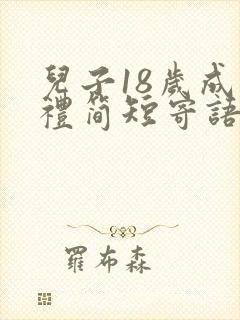 兒子18歲成
禮簡短寄語
羅布森